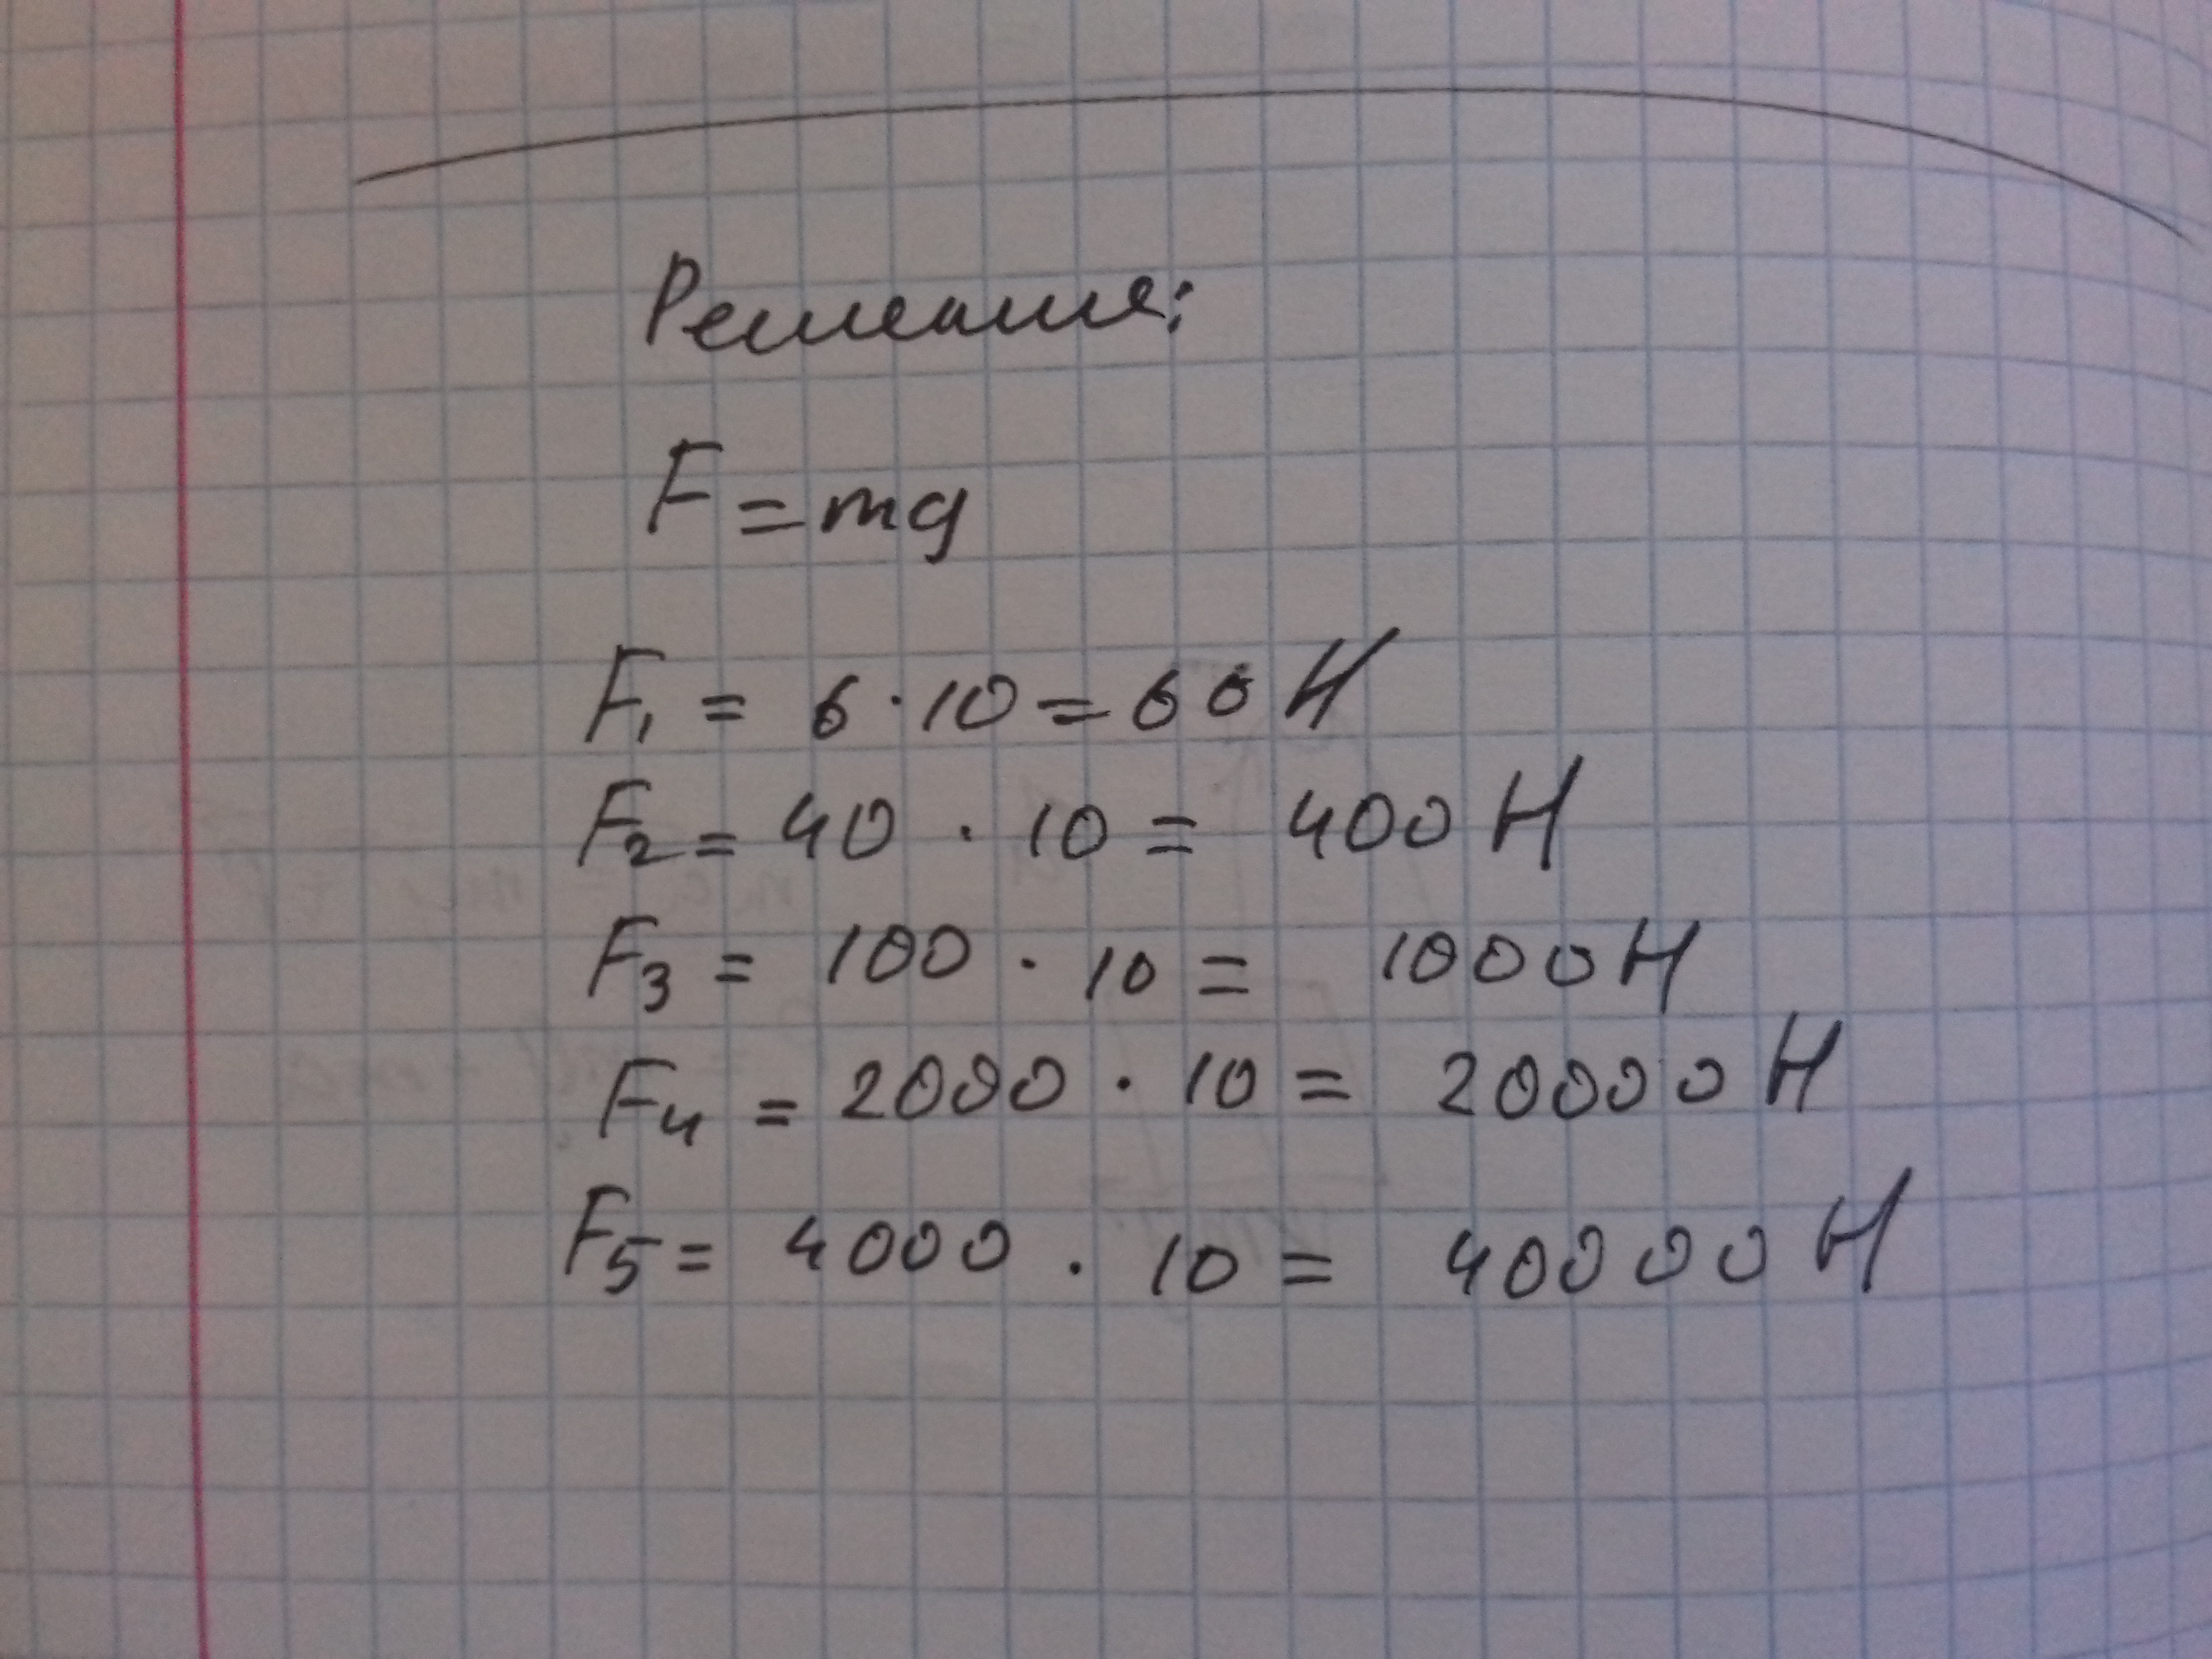 Решение:
F = mg
F₁ = 6 · 10 = 60 Н
F₂ = 40 · 10 = 400 Н
F₃ = 100 · 10 = 1000 Н
F₄ = 2000 · 10 = 20000 Н
F₅ = 4000 · 10 = 40000 Н